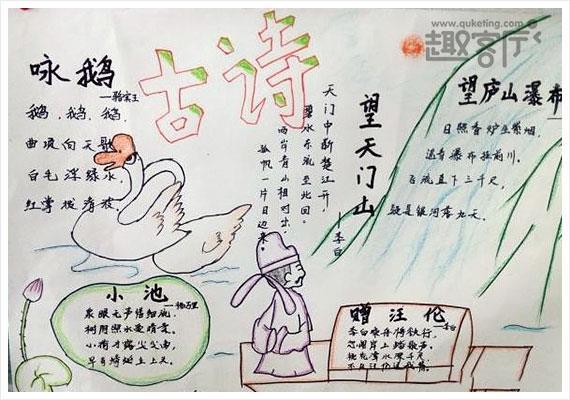 www.quketing.com
趣客厅
古诗
咏鹅
—骆宾王
鹅,鹅,鹅,
曲项向天歌
白毛浮绿水,
红掌拨清波
天门中断楚江开,
碧水东流至此回。
两岸青山相对出,
孤帆一片日边来。
望天门山
—李白
望庐山瀑布
日照香炉生紫烟,
遥看瀑布挂前川。
飞流直下三千尺,
疑是银河落九天。
小池
—杨万里
泉眼无声惜细流,
树阴照水爱晴柔。
小荷才露尖尖角,
早有蜻蜓立上头。
赠汪伦
—李白
李白乘舟将欲行,
忽闻岸上踏歌声。
桃花潭水深千尺,
不及汪伦送我情。